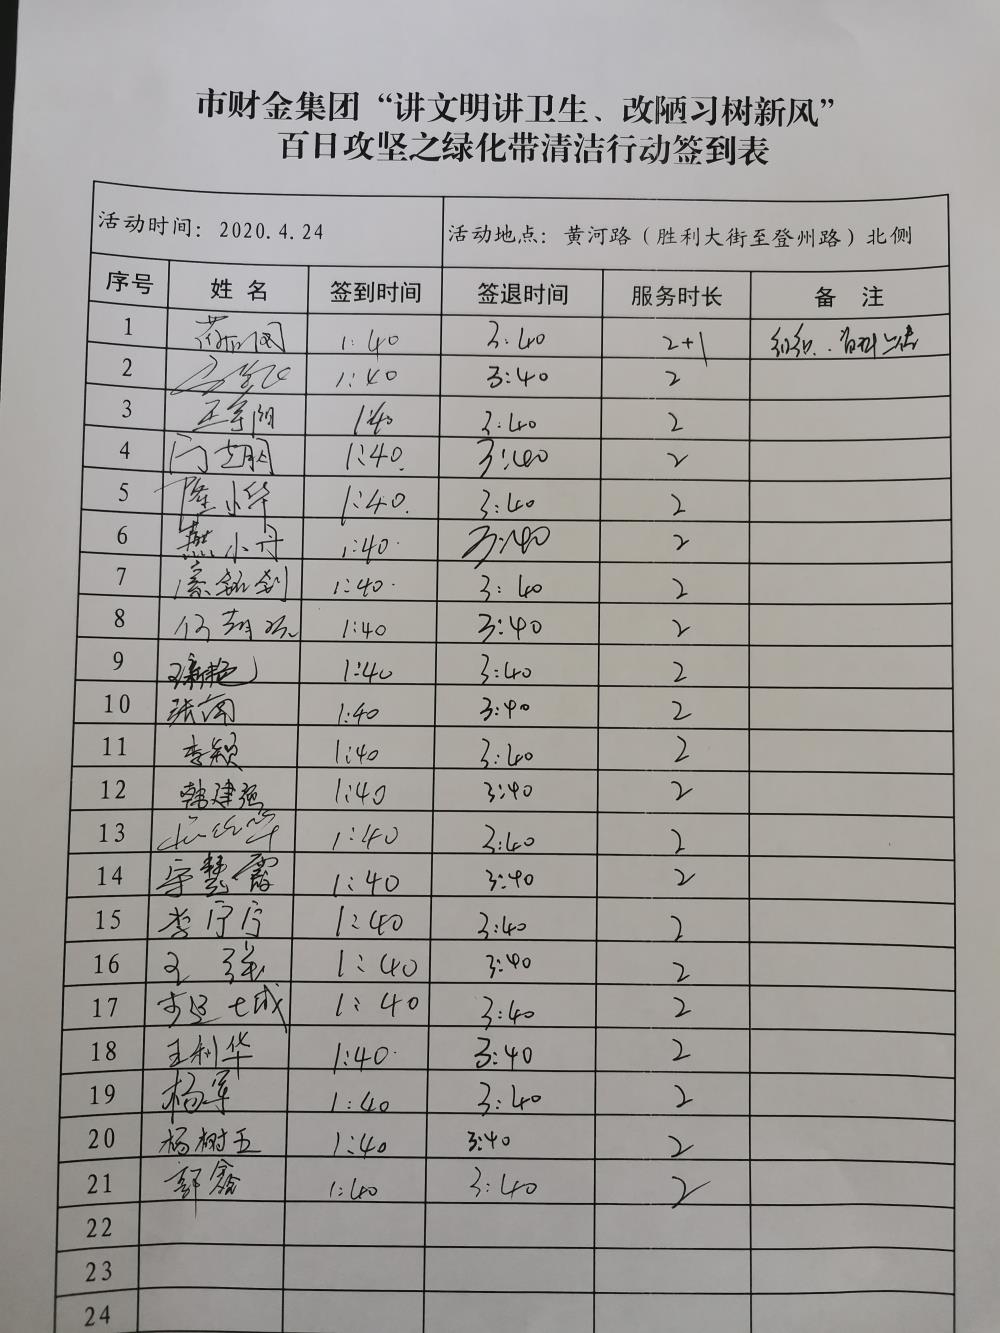 市财金集团“讲文明讲卫生、改陋习树新风”
百日攻坚之绿化带清洁行动签到表
活动时间：2020.4.24 活动地点：黄河路（胜利大街至登州路）北侧
序号 姓名 签到时间 签退时间 服务时长 备 注
1 1:40 3:40 2+1
2 1:40 3:40 2
3 1:40 3:40 2
4 1:40 3:40 2
5 陈小华 1:40 3:40 2
6 燕小丹 1:40 3:40 2
7 1:40 3:40 2
8 1:40 3:40 2
9 1:40 3:40 2
10 1:40 3:40 2
11 李颖 1:40 3:40 2
12 韩建强 1:40 3:40 2
13 1:40 3:40 2
14 宋慧霞 1:40 3:40 2
15 李宁宁 1:40 3:40 2
16 王强 1:40 3:40 2
17 1:40 3:40 2
18 王利华 1:40 3:40 2
19 杨军 1:40 3:40 2
20 杨树玉 1:40 3:40 2
21 郭鑫 1:40 3:40 2
22
23
24